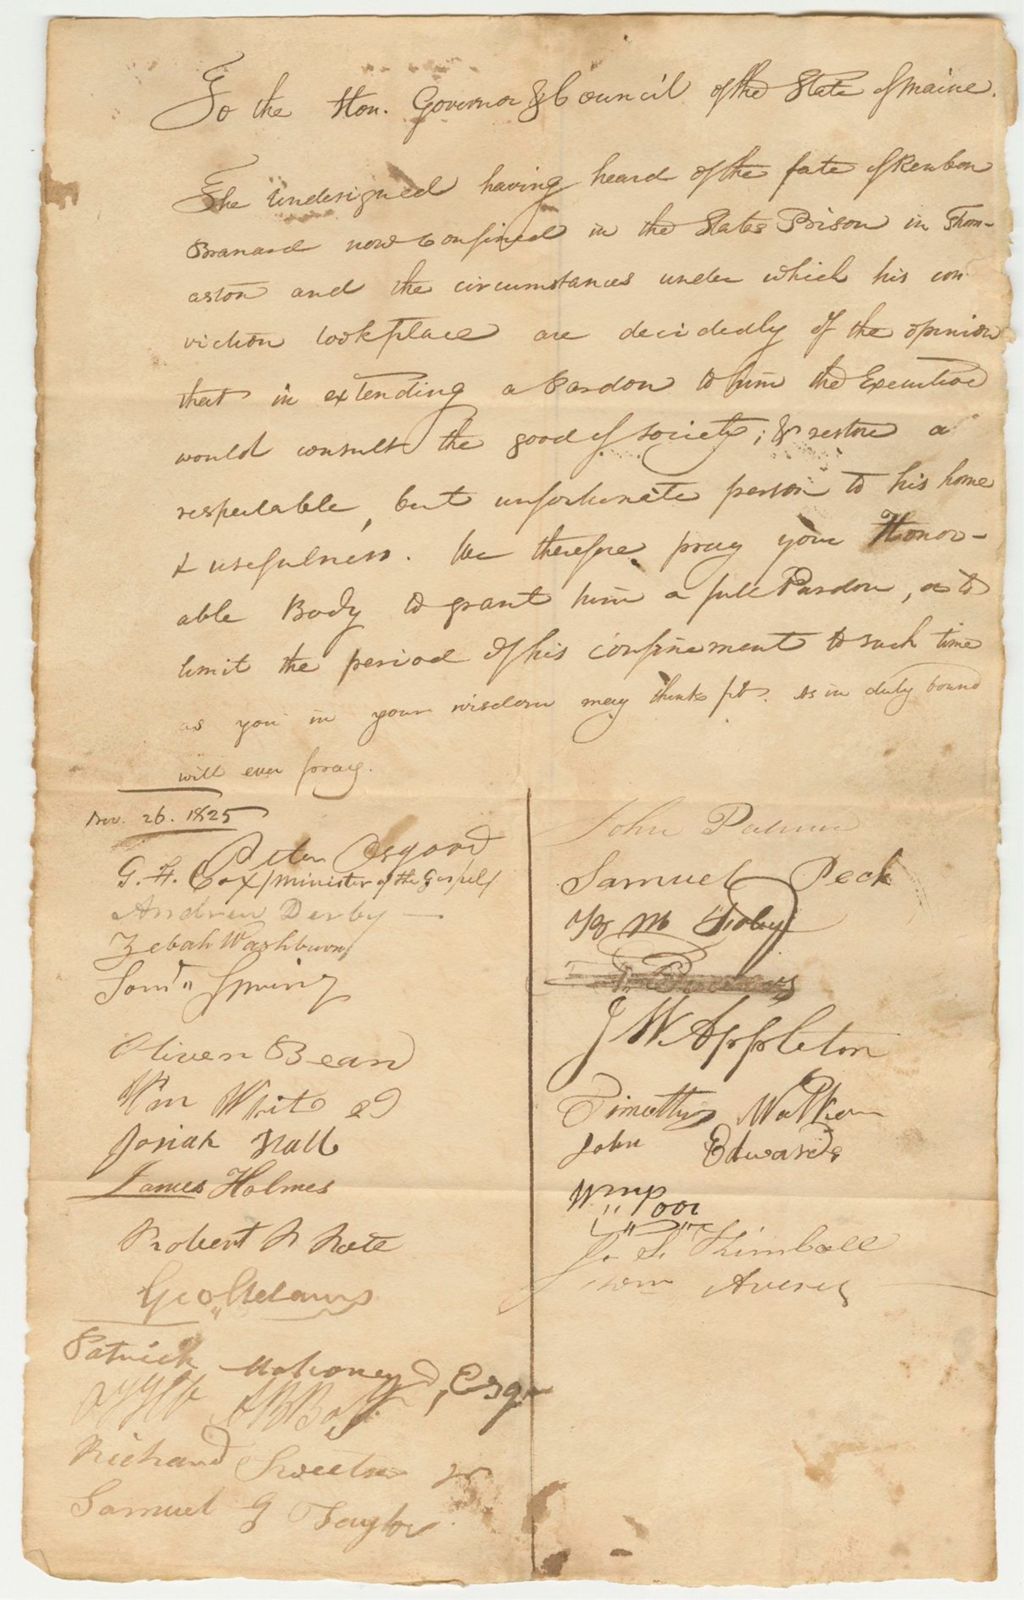 To the Hon. Governor & Council of the State of Maine.
The Undersigned having heard of the fate of Reubon
Branard now confined in the States Prison in Thom-
aston and the circumstances under which his con
viction took place are decidedly of the opinion
that in extending a Pardon to him the Executive
would consult the good of society; & restore a
respectable, but unfortunate person to his home
& usefulness. We therefore pray your Honor-
able Body to grant him a full Pardon, or to
limit the period of his confinement to such time
as you in your wisdom may think fit. As in duty bound
will ever pray.
Nov. 26. 1825
Peter Osgood
G. F. Cox / Minister of the Gospel /
Andrew Derby
Zebah Washburn
Saml Spring
Oliver Bean
Wm White
Josiah Hall
James Holmes
Robert
Geo Adams
Patrick Mahoney, Esqr
Richard Sweetser Jr
Samuel G Taylor
John
Samuel Peck
J W. Appleton
Timothy Walker
John Edwards
Wm Poor
J. S. Kimball
Avery